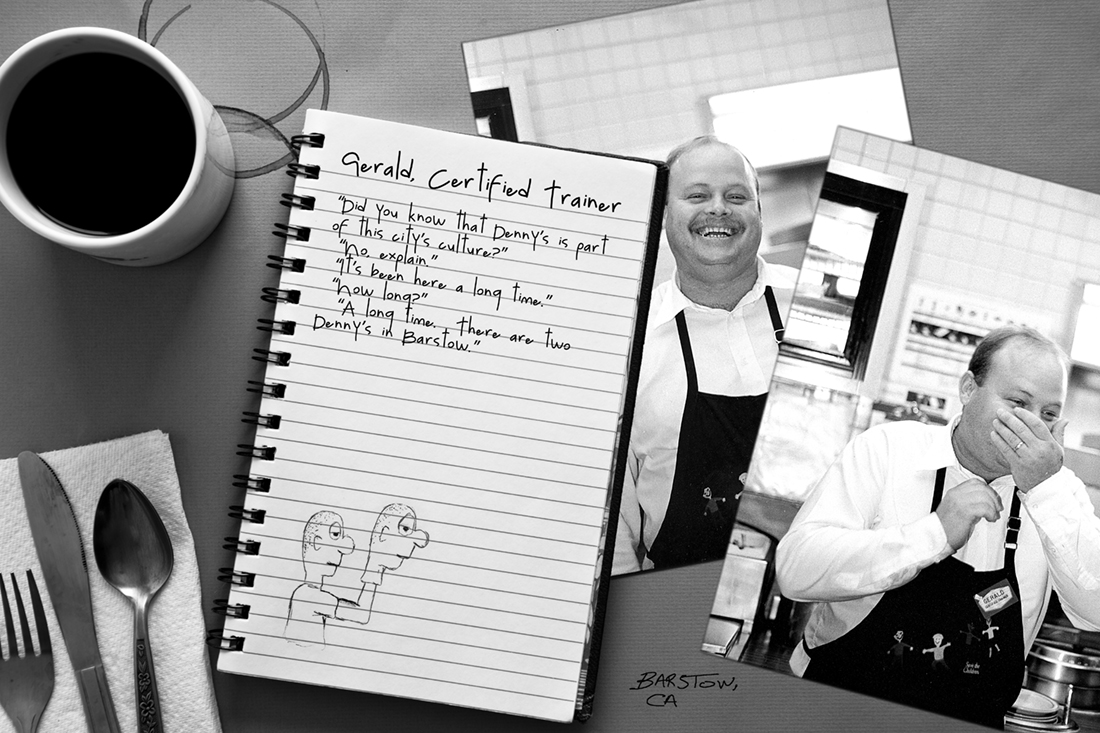 Gerald, Certified Trainer
"Did you know that Denny's is part
of this city's culture?"
"No, explain."
"It's been here a long time."
"How long?"
"A long time. There are two
Denny's in Barstow."
GERALD
Save the
Children
BARSTOW,
CA